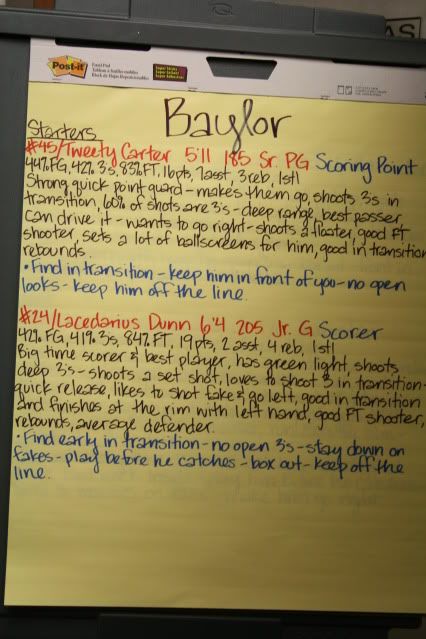 Post-it
Easel Pad
Super Sticky
AS
Baylor
Starters
#45/Tweety Carter 5'11 185 Sr. PG Scoring Point
44% FG, 42% 3s, 83% FT, 16pts, 7asst, 3reb, 1stl
Strong, quick point guard - makes them go, shoots 3s in
transition, 60% of shots are 3's - deep range, best passer,
can drive it - wants to go right - shoots a floater, good FT
shooter, sets a lot of ballscreens for him, good in transition
rebounds.
• Find in transition - keep him in front of you - no open
looks - keep him off the line.
#24/Lacedarius Dunn 6'4 205 Jr. G Scorer
42% FG, 41% 3s, 84% FT, 19pts, 2 asst, 4 reb, 1stl
Big time scorer & best player, has green light, shoots
deep 3's - shoots a set shot, loves to shoot 3 in transition -
quick release, likes to shot fake & go left, good in transition
and finishes at the rim with left hand, good FT shooter,
rebounds, average defender.
• Find early in transition - no open 3's - stay down on
fakes - play before he catches - box out - keep off the
line.